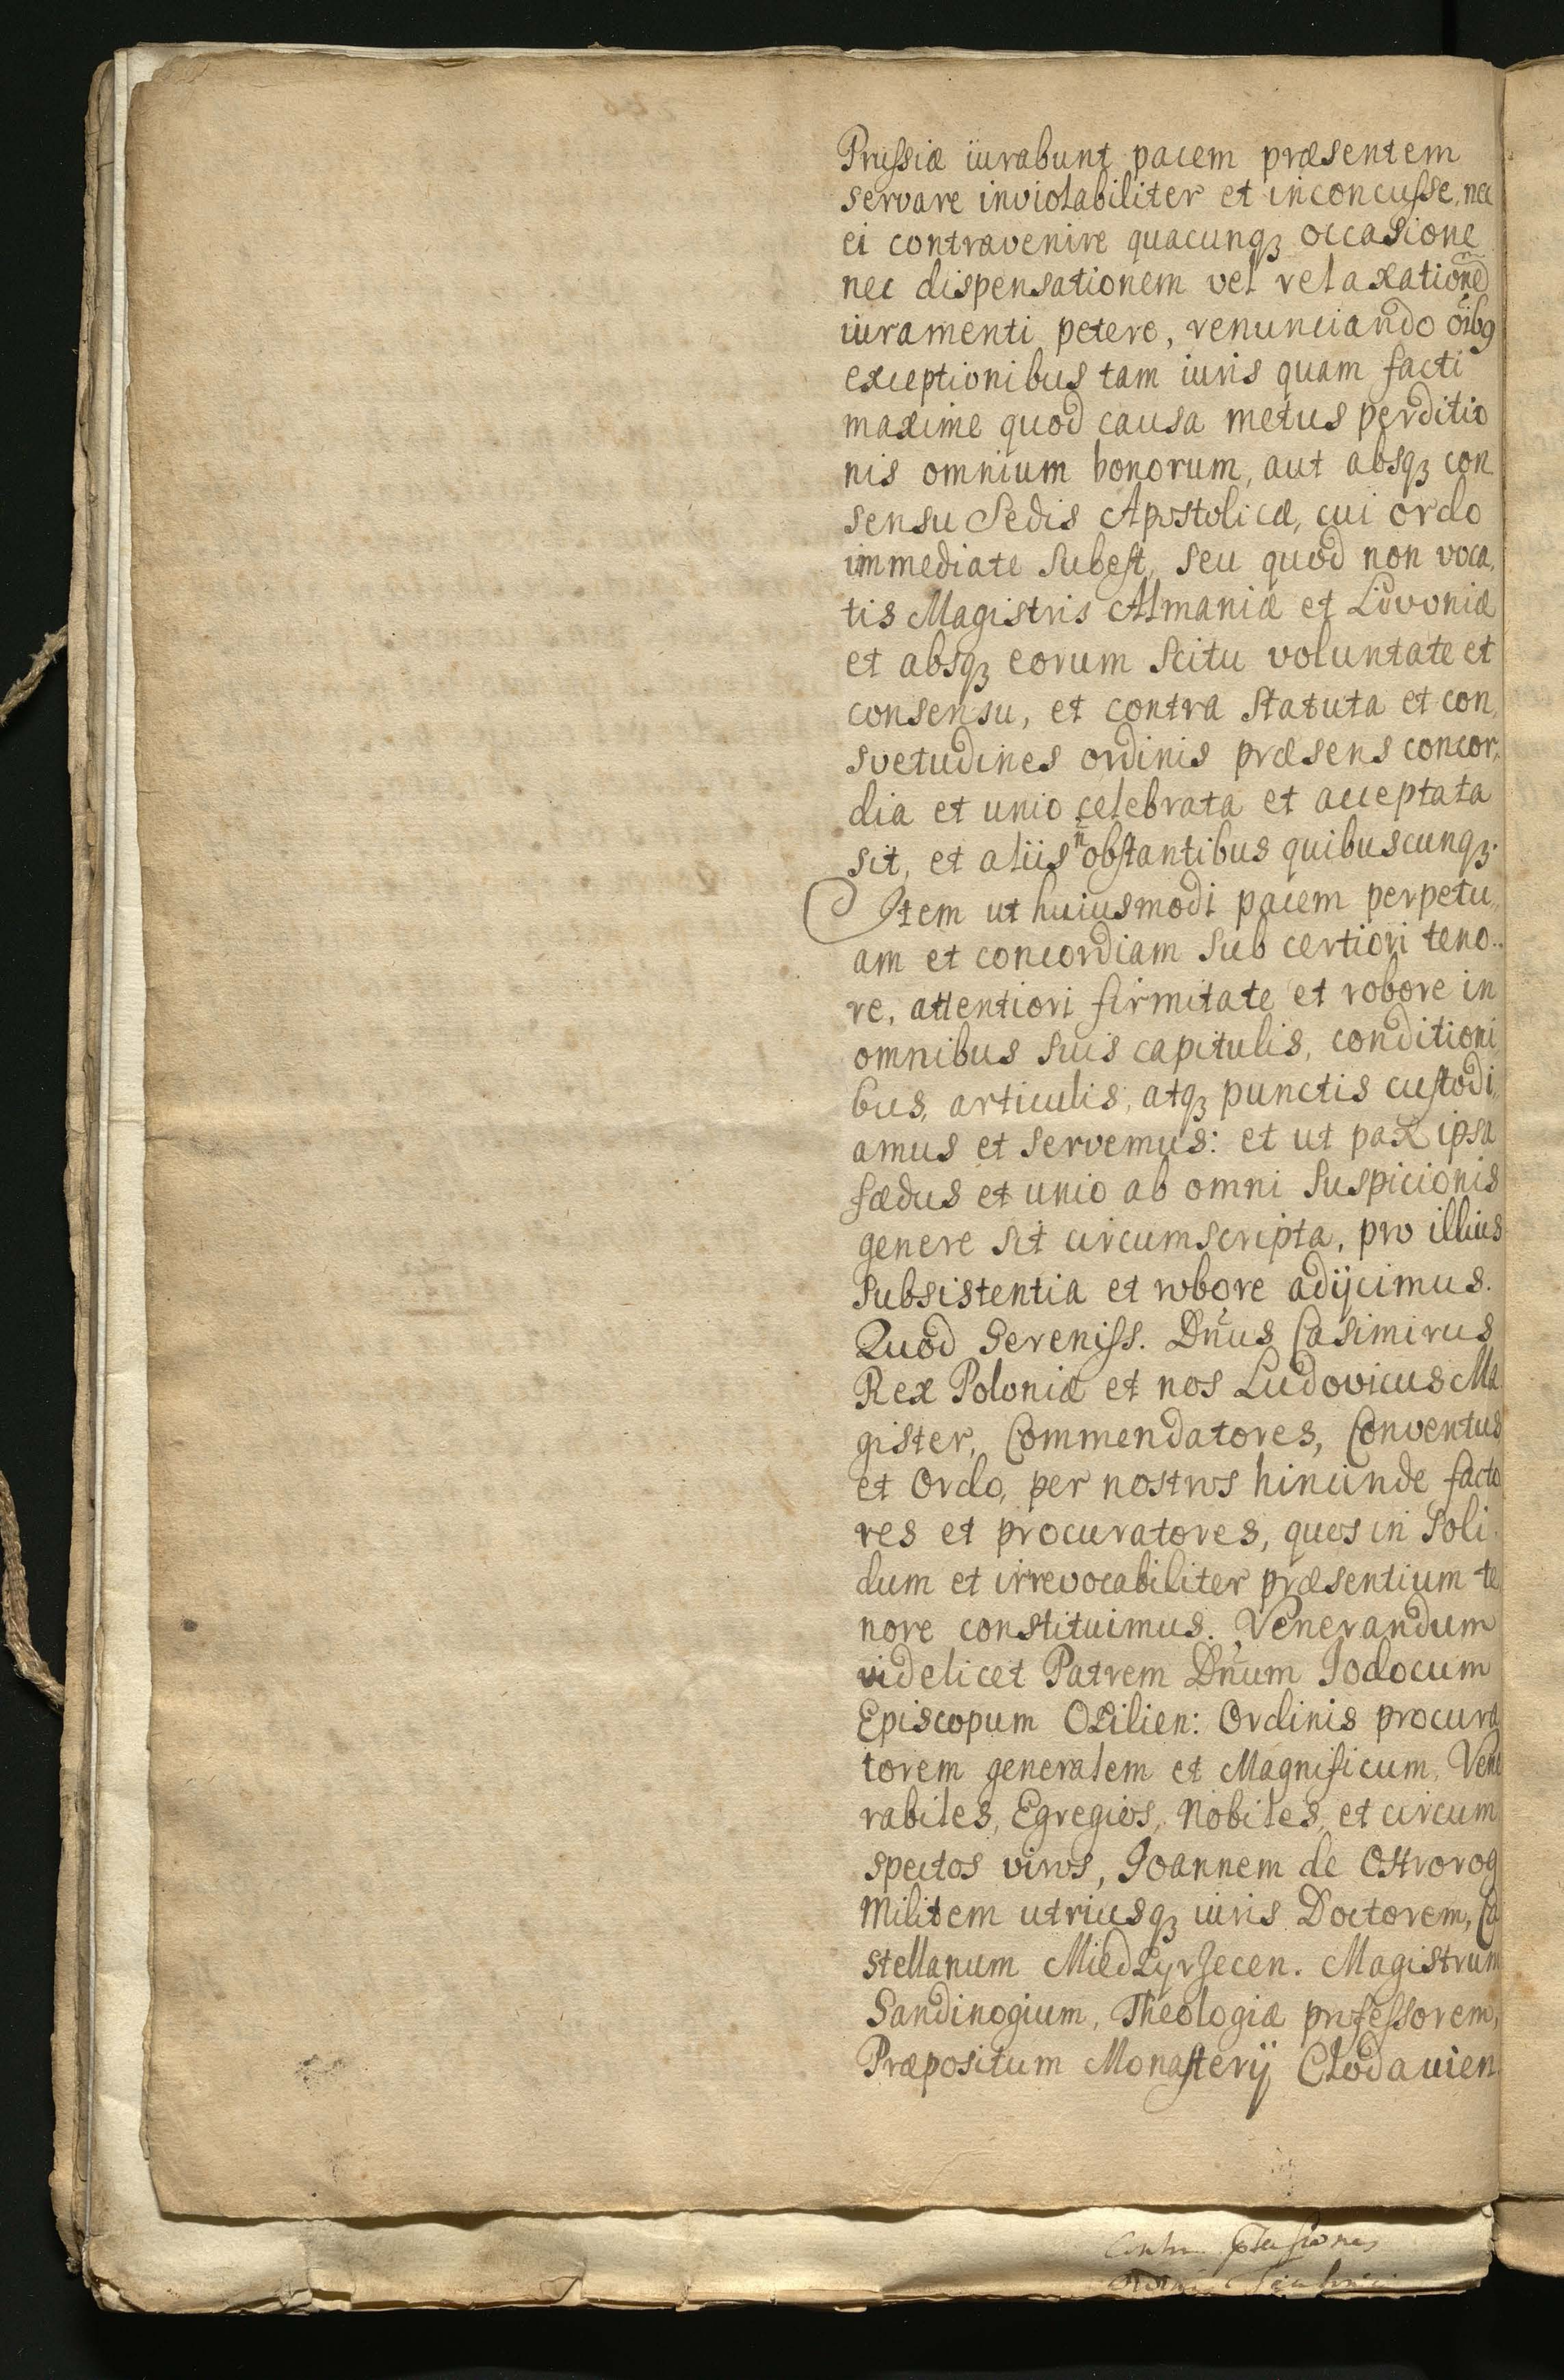 Prussiæ iurabunt pacem præsentem
servare inviolabiliter et inconcusse, nec
ei contravenire quacunqꝫ occasione
nec dispensationem vel relaxatione͂
iuramenti petere, renunciando o͂ibꝯ
exceptionibus tam iuris quam facti
maxime quod causa metus perditio
nis omnium bonorum, aut absqꝫ con
sensu Sedis Apostolicæ, cui ordo
immediate subest, seu quod non voca,
tis Magistris Almaniæ et Livoniæ
et absqꝫ eorum scitu voluntate et
consensu, et contra statuta et con,
svetudines ordinis præsens concor,
dia et unio celebrata et acceptata
sit, et aliis n͂ obstantibus quibuscunqꝫ.
Item ut huiusmodi pacem perpetu,,
am et concordiam sub certiori teno..
re, attentiori firmitate et robore in
omnibus suis capitulis, conditioni
bus, articulis, atqꝫ punctis custodi,,
amus et servemus: et ut pax ipsa
fædus et unio ab omni suspicionis
genere sit circumscripta, pro illius
subsistentia et robore adijcimus.
Quod Sereniss. Dn͂us Casimirus
Rex Poloniæ et nos Ludovicus Ma
gister, Commendatores, Conventus
et Ordo, per nostros hincinde facto
res et procuratores, quos in soli.
dum et irrevocabiliter præsentium te
nore constituimus. Venerandum
videlicet Patrem Dn͂um Iodocum
Episcopum Osilien: Ordinis procura
torem generalem et Magnificum, Vene
rabiles, Egregios, Nobiles, et circum
spectos viros, Ioannem de Ostrorog
Militem utriusqꝫ iuris Doctorem, Ca
stellanum Miedzyrzecen. Magistrum
Sandinogium, Theologiæ professorem,
Præpositum Monasterij Clodavien